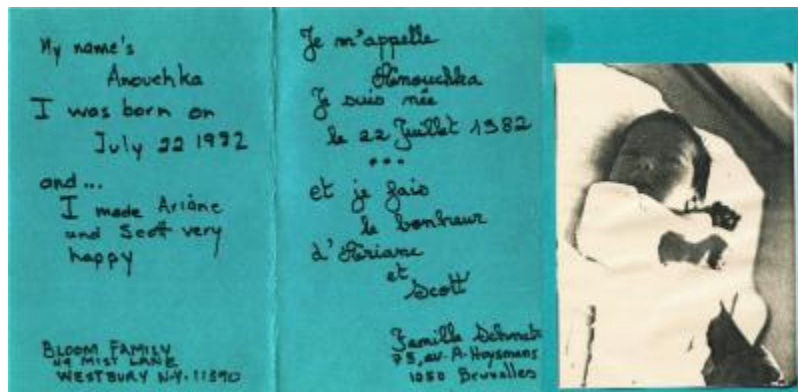 My name's
Anouchka
I was born on
July 22 1982
and...
I made Ariane
and Scott very
happy
BLOOM FAMILY
MIST LANE
WESTBURY N.Y. 11590
Je m'appelle
Anouchka
Je suis née
le 22 Juillet 1982
...
et je fais
le bonheur
d'Ariane
et
Scott
Famille
75, av. A. Huysmans
1050 Bruxelles